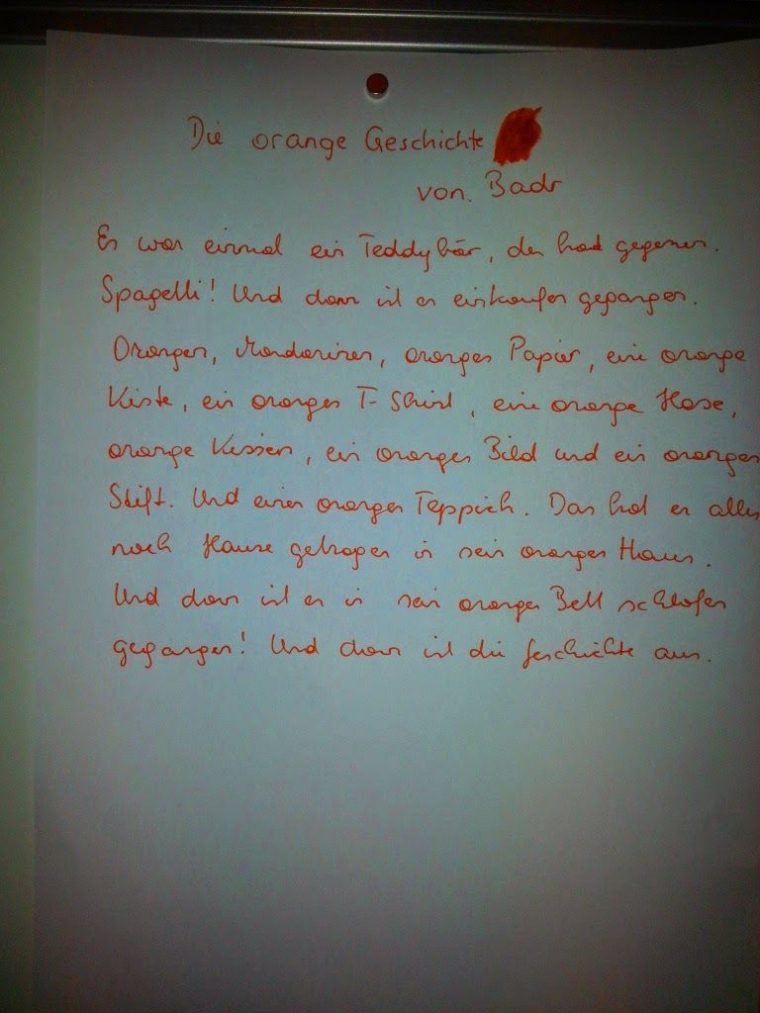 Die orange Geschichte
von. Badr
Es war einmal ein Teddybär, der hat gegessen.
Spagetti! Und dann ist er einkaufen gegangen.
Orangen, Mandarinen, oranges Papier, eine orange
Kiste, ein oranges T-Shirt, eine orange Hose,
orange Kissen, ein oranges Bild und ein oranger
Stift. Und einen orangen Teppich. Das hat er alles
nach Hause getragen in sein oranges Haus.
Und dann ist er in sein oranges Bett schlafen
gegangen! Und dann ist die Geschichte aus.